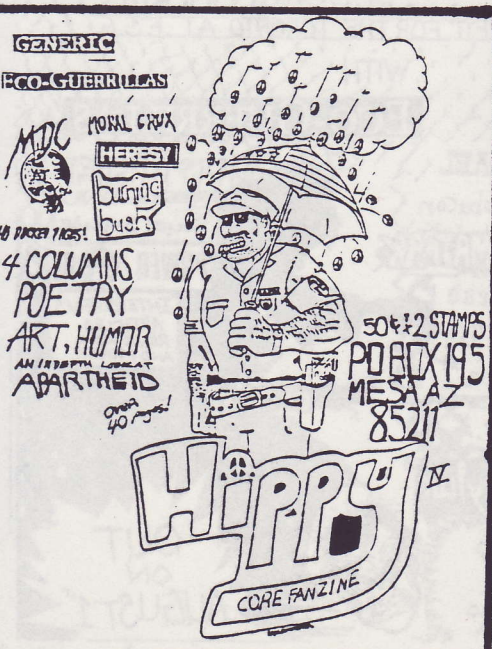 GENERIC
ECO-GUERRILLAS
MDC
MORAL CRUX
HERESY
burning
bush
4 COLUMNS
POETRY
ART, HUMOR
AN INDEPTH LOOK AT
APARTHEID
over
40 pages!
50¢ + 2 STAMPS
PO BOX 195
MESA AZ
85211
HIPPY IV
CORE FANZINE